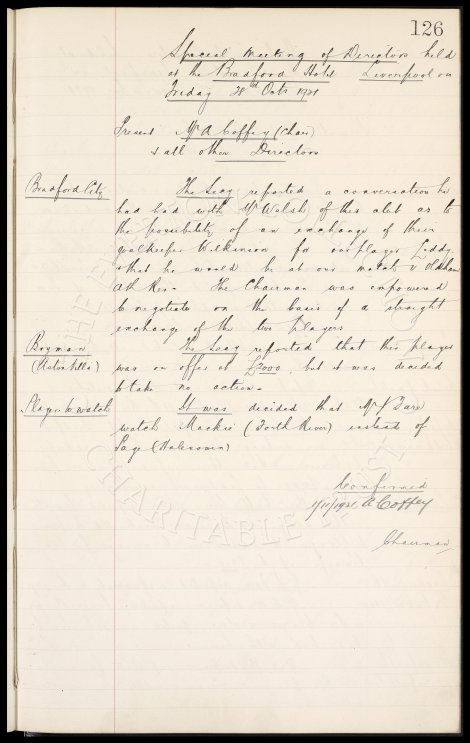 126
Special Meeting of Directors held
at the Bradford Hotel Liverpool on
Friday 28th Octr 1921
Present Mr A Coffey (Chair)
& all other Directors
Bradford City
The Secy reported a conversation he
had had with Mr Walsh of this club as to
the possibility of an exchange of their
goalkeeper Wilkinson for our player Liddy.
& that he would be at our match v Oldham
Ath Res. The Chairman was empowered
to negotiate on the basis of a straight
exchange of the two players
Boyman
(Aston Villa)
The Secy reported that this player
was on offer at £2000, but it was decided
to take no action.
Player to watch
It was decided that Mr Dare
watch Mackie (Forth River) instead of
Sage (Halesowen)
Confirmed
1/11/1921 A Coffey
Chairman
THE EVERTON
CHARITABLE TRUST